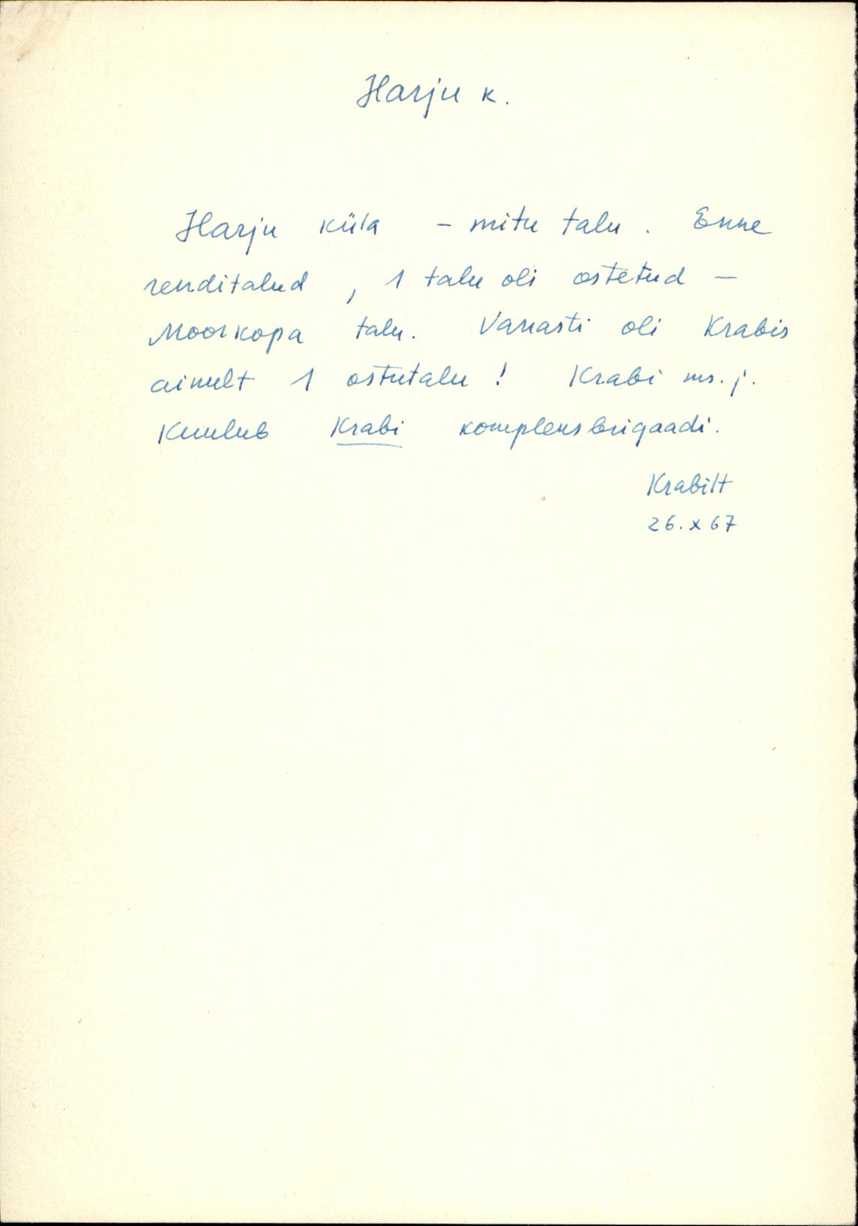 Harju k.
Harju küla - mitu talu. Enne
renditalud, 1 talu oli ostetud -
Moorkopa talu. Vanasti oli Krabis
ainult 1 ostutalu! Krabi ms. j.
Kuulub Krabi kompleksbrigaadi.
Krabilt
26. X 67